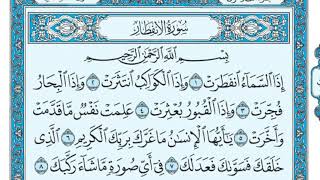 سُورَةُ الِانفِطَارِ
بِسْمِ اللَّهِ الرَّحْمَٰنِ الرَّحِيمِ
إِذَا السَّمَاءُ انفَطَرَتْ ١ وَإِذَا الْكَوَاكِبُ انتَثَرَتْ ٢ وَإِذَا الْبِحَارُ
فُجِّرَتْ ٣ وَإِذَا الْقُبُورُ بُعْثِرَتْ ٤ عَلِمَتْ نَفْسٌ مَّا قَدَّمَتْ
وَأَخَّرَتْ ٥ يَا أَيُّهَا الْإِنسَانُ مَا غَرَّكَ بِرَبِّكَ الْكَرِيمِ ٦ الَّذِي
خَلَقَكَ فَسَوَّاكَ فَعَدَلَكَ ٧ فِي أَيِّ صُورَةٍ مَّا شَاءَ رَكَّبَكَ ٨